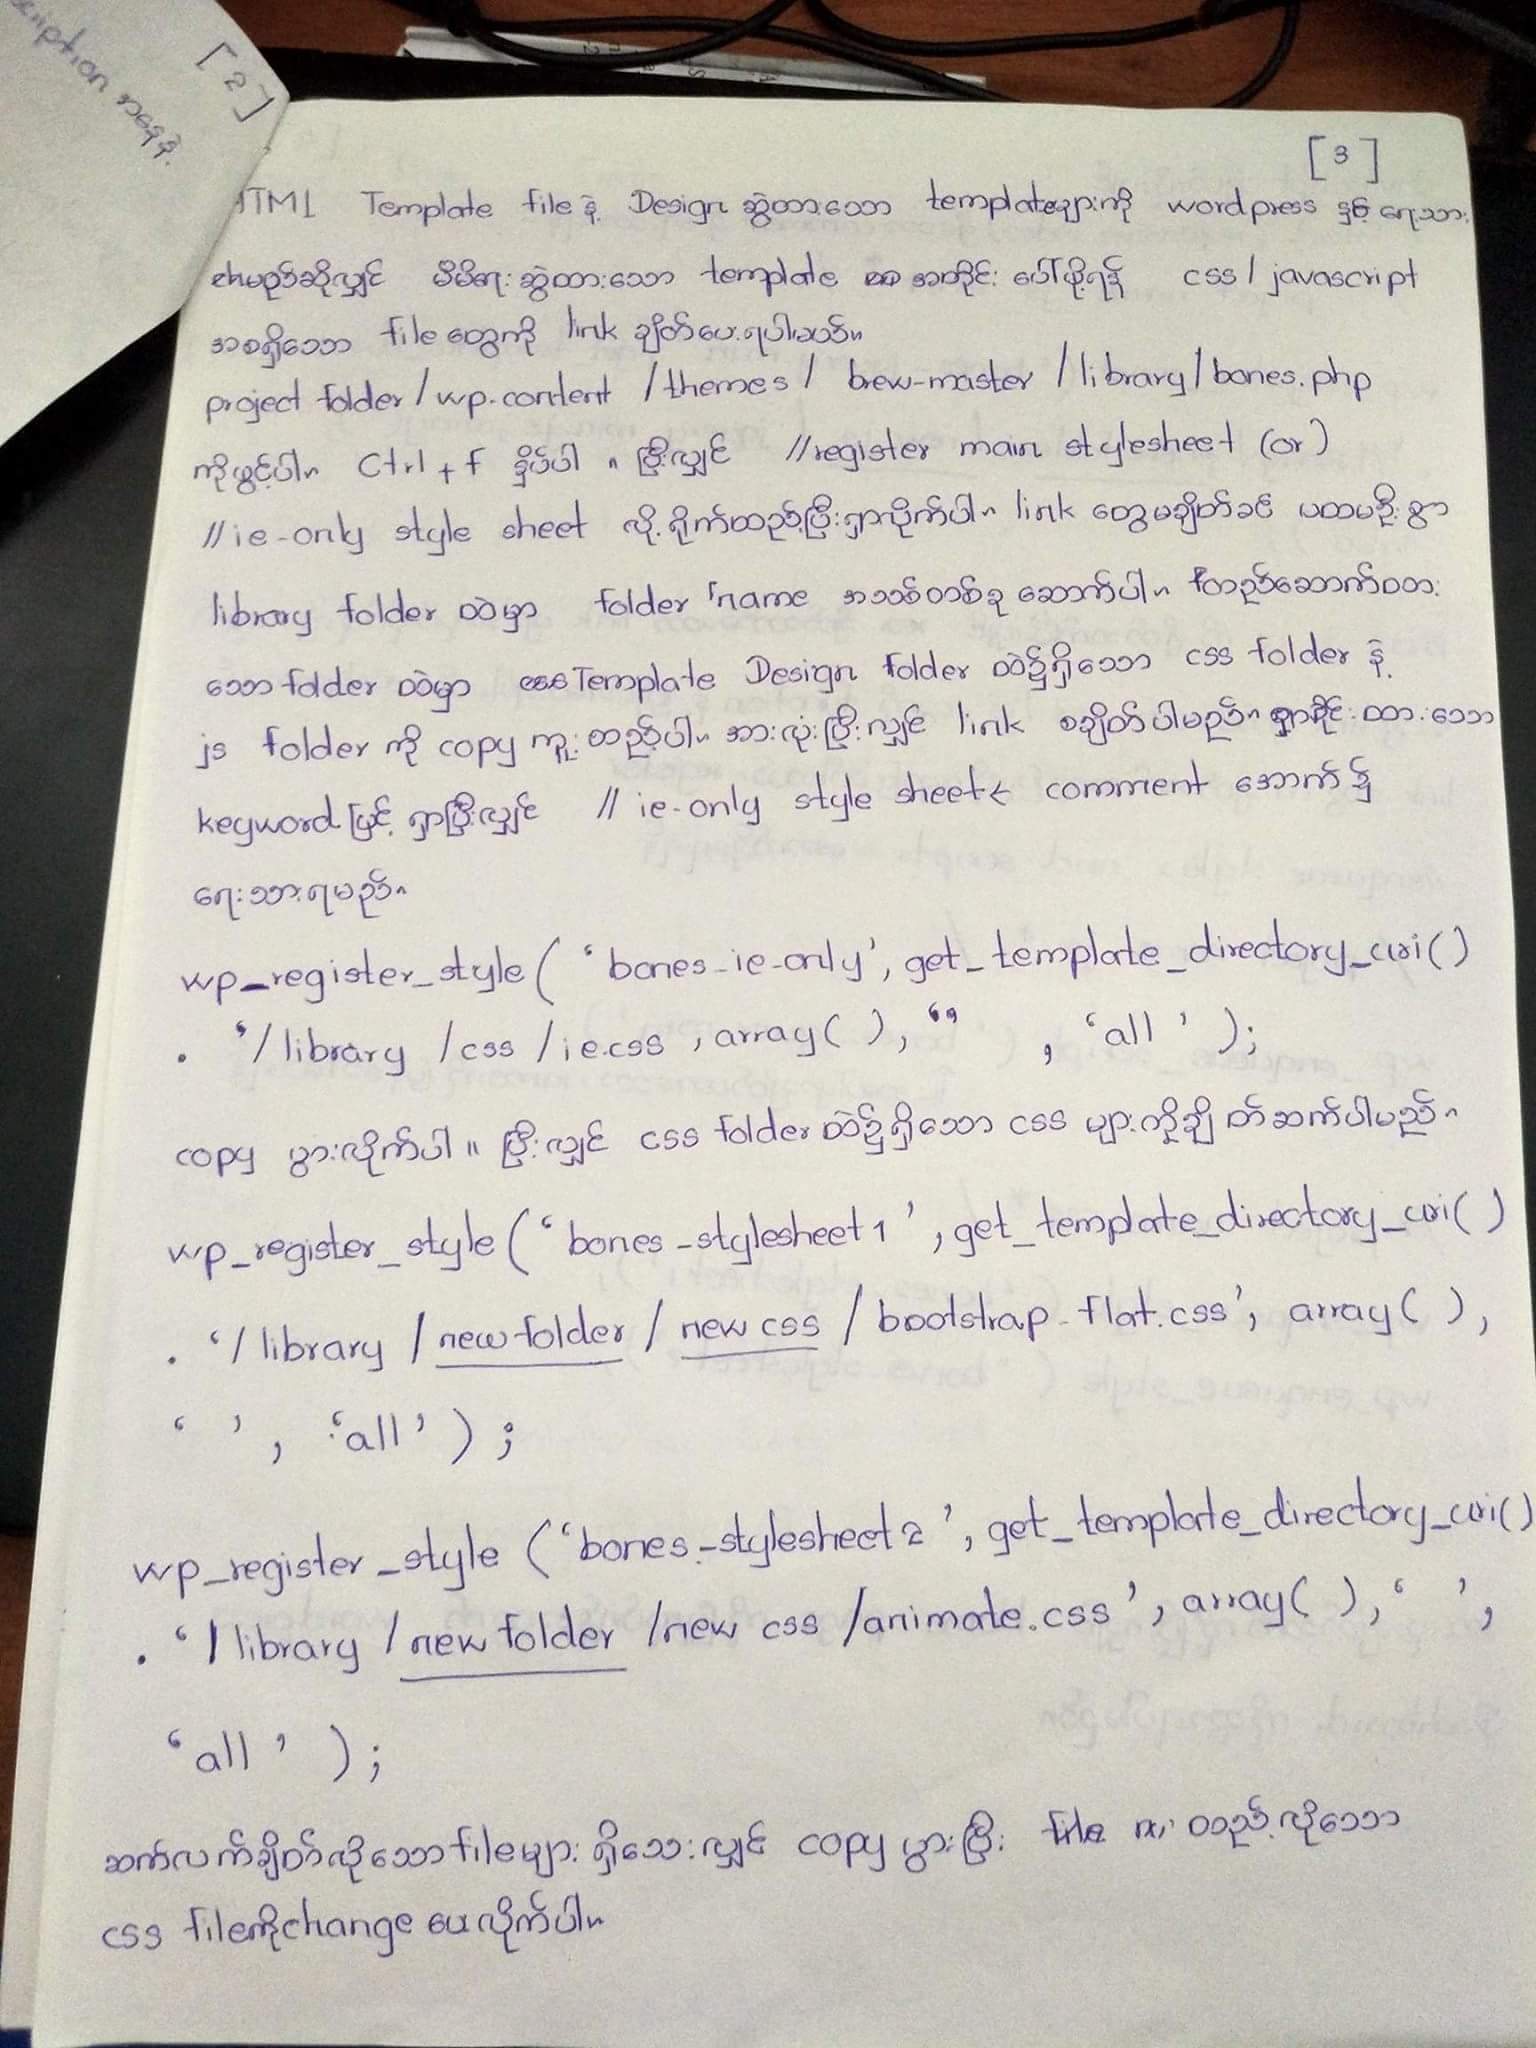 [2]
[3]
HTML Template file နဲ့ Design ဆွဲထားသော templateများကို wordpress နှင့် ရေးသား
မည်ဆိုလျှင် မိမိရေးဆွဲထားသော template အတိုင်း ပေါ်ဖို့ရန် css / javascript
အစရှိသော file တွေကို link ချိတ်ပေးရပါမည်။
project folder / wp.content / themes / brew-master / library / bones.php
ကိုဖွင့်ပါ။ Ctrl + f နှိပ်ပါ ။ ပြီးလျှင် //register main stylesheet (or)
// ie-only style sheet လို့ ရိုက်ထည့်ပြီးရှာလိုက်ပါ။ link တွေမချိတ်ခင် ပထမဦးစွာ
library folder ထဲမှာ folder name အသစ်တစ်ခု ဆောက်ပါ။ တည်ဆောက်ထား
သော folder ထဲမှာ Template Design folder ထဲ၌ရှိသော css folder နဲ့
js folder ကို copy ကူးထည့်ပါ။ အားလုံးပြီးလျှင် link စချိတ်ပါမည်။ ရှာခိုင်းထားသော
keyword ဖြင့် ရှာပြီးလျှင် // ie-only style sheet < comment အောက်၌
ရေးသားရမည်။
wp_register_style ( 'bones-ie-only', get_template_directory_uri()
. '/ library / css / ie.css , array( ), '' , 'all' );
copy ပွားလိုက်ပါ ။ ပြီးလျှင် css folder ထဲ၌ရှိသော css များကိုချိတ်ဆက်ပါမည်။
wp_register_style ( 'bones-stylesheet1 ', get_template_directory_uri()
. '/ library / new folder / new css / bootstrap-flat.css', array( ),
' ', 'all' ) ;
wp_register_style ( 'bones-stylesheet2 ', get_template_directory_uri()
. '/ library / new folder / new css / animate.css', array( ), ' ',
'all ' ) ;
ဆက်လက်ချိတ်လိုသော file များ ရှိသေးလျှင် copy ပွားပြီး ထည့်လိုသော
css fileကိုchange ပေးလိုက်ပါ။